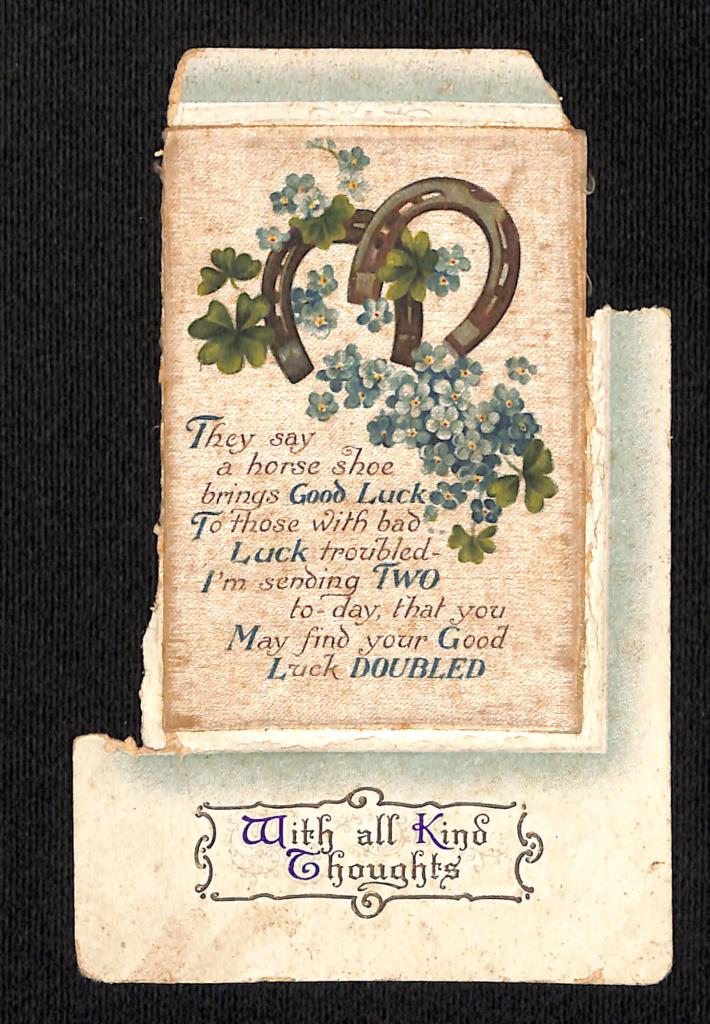 They say
a horse shoe
brings Good Luck
To those with bad
Luck troubled-
I'm sending TWO
to-day, that you
May find your Good
Luck DOUBLED
With all Kind
Thoughts